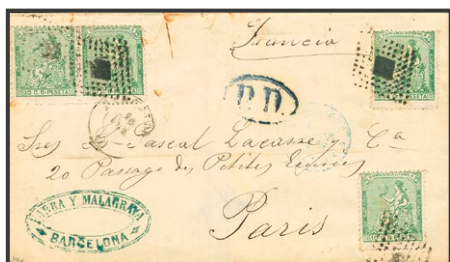 Francia
P.D.
Sres Pascal Lacasse y Ca
20 Passage des Petites Ecuries
Paris
Y MALAGRAVA
BARCELONA